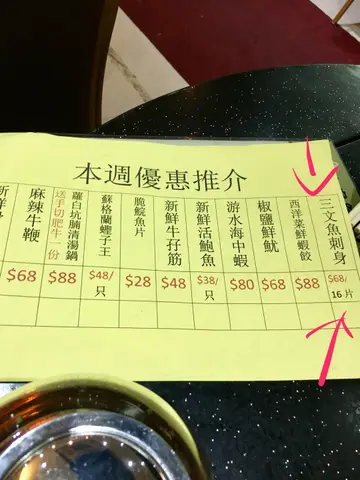 本週優惠推介
三文魚刺身
$68/
16 片
西洋菜鮮蝦餃
$88
椒鹽鮮魷
$68
游水海中蝦
$80
新鮮活鮑魚
$38/
只
新鮮牛孖筋
$48
脆鯇魚片
$28
蘇格蘭蟶子王
$48/
只
蘿白坑腩清湯鍋
送手切肥牛一份
$88
麻辣牛鞭
$68